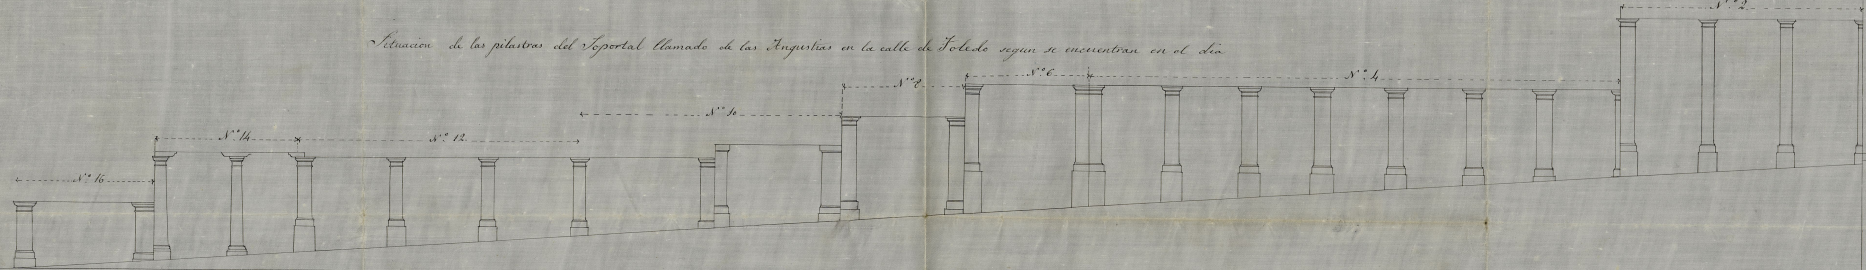 Situacion de las pilastras del Soportal llamado de las Angustias en la calle de Toledo segun se encuentran en el dia
Nº 2
Nº 4
Nº 6
Nº 8
Nº 10
Nº 12
Nº 14
Nº 16